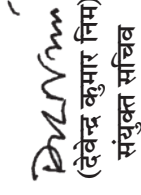 (देवेन्द्र कुमार निम)
संयुक्त सचिव